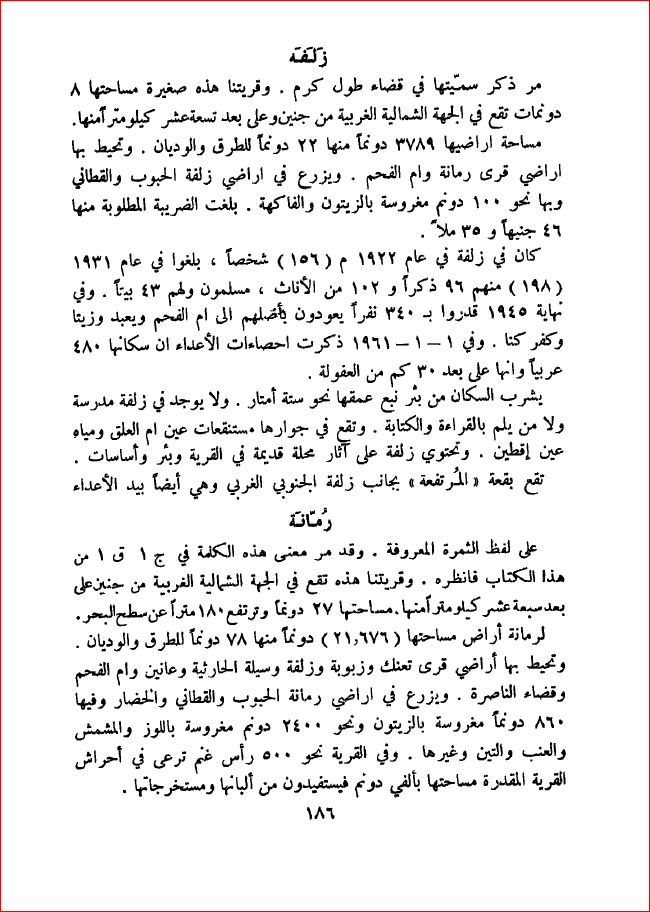 زَلَفَه
مر ذكر سميّتها في قضاء طول كرم . وقريتنا هذه صغيرة مساحتها ٨
دونمات تقع في الجهة الشمالية الغربية من جنين وعلى بعد تسعة عشر كيلومتراً منها.
مساحة اراضيها ٣٧٨٩ دونماً منها ٢٢ دونماً للطرق والوديان . وتحيط بها
اراضي قرى رمانة وام الفحم . ويزرع في اراضي زلفة الحبوب والقطاني
وبها نحو ١٠٠ دونم مغروسة بالزيتون والفاكهة . بلغت الضريبة المطلوبة منها
٤٦ جنيهاً و ٣٥ ملاً .
كان في زلفة في عام ١٩٢٢ م ( ١٥٦ ) شخصاً ، بلغوا في عام ١٩٣١
( ١٩٨ ) منهم ٩٦ ذكراً و ١٠٢ من الأناث ، مسلمون ولهم ٤٣ بيتاً . وفي
نهاية ١٩٤٥ قدروا بـ ٣٤٠ نفراً يعودون بأصلهم الى ام الفحم ويعبد وزيتا
وكفر كنا . وفي ١ – ١ – ١٩٦١ ذكرت احصاءات الأعداء ان سكانها ٤٨٠
عربياً وانها على بعد ٣٠ كم من العفولة .
يشرب السكان من بئر نبع عمقها نحو ستة أمتار . ولا يوجد في زلفة مدرسة
ولا من يلم بالقراءة والكتابة . وتقع في جوارها مستنقعات عين ام العلق ومياه
عين إقطين . وتحتوي زلفة على آثار محلة قديمة في القرية وبئر وأساسات .
تقع بقعة « المُرتفعة » بجانب زلفة الجنوبي الغربي وهي أيضاً بيد الأعداء
رُمّانَة
على لفظ الثمرة المعروفة . وقد مر معنى هذه الكلمة في ج ١ ق ١ من
هذا الكتاب فانظره . وقريتنا هذه تقع في الجهة الشمالية الغربية من جنين على
بعد سبعة عشر كيلومتراً منها. مساحتها ٢٧ دونماً وترتفع ١٨٠ متراً عن سطح البحر.
لرمانة أراض مساحتها ( ٢١,٦٧٦ ) دونماً منها ٧٨ دونماً للطرق والوديان .
وتحيط بها أراضي قرى تعنك وزبوبة وزلفة وسيلة الحارثية وعانين وام الفحم
وقضاء الناصرة . ويزرع في اراضي رمانة الحبوب والقطاني والخضار وفيها
٨٦٠ دونماً مغروسة بالزيتون ونحو ٢٤٠٠ دونم مغروسة باللوز والمشمش
والعنب والتين وغيرها . وفي القرية نحو ٥٠٠ رأس غنم ترعى في أحراش
القرية المقدرة مساحتها بألفي دونم فيستفيدون من ألبانها ومستخرجاتها .
١٨٦